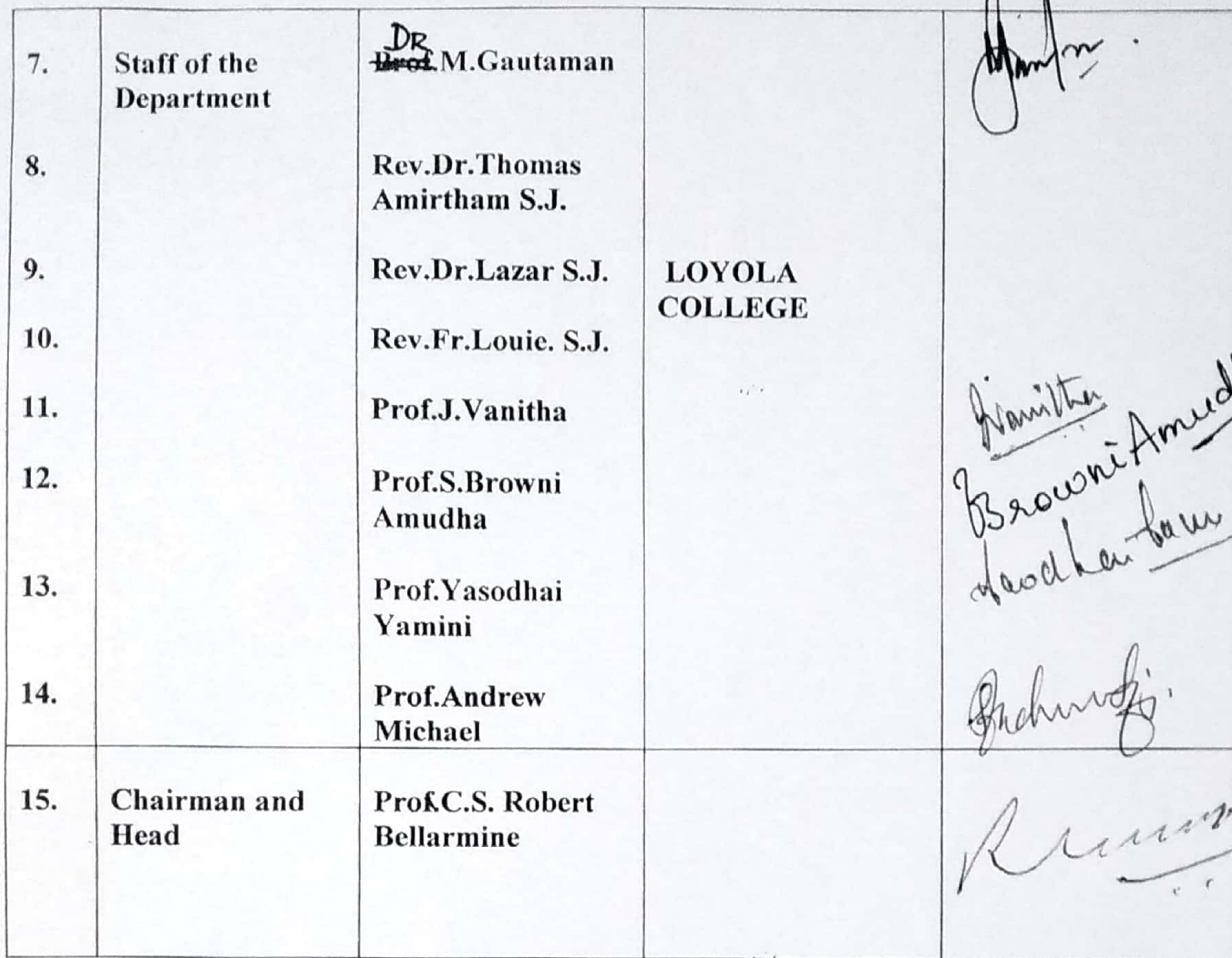 7. Staff of the DR Prof.M.Gautaman
Department
8. Rev.Dr.Thomas
Amirtham S.J.
9. Rev.Dr.Lazar S.J. LOYOLA
COLLEGE
10. Rev.Fr.Louie. S.J.
11. Prof.J.Vanitha Vanitha
12. Prof.S.Browni Browni Amud
Amudha
13. Prof.Yasodhai
Yamini
14. Prof.Andrew
Michael
15. Chairman and Prof.C.S. Robert
Head Bellarmine